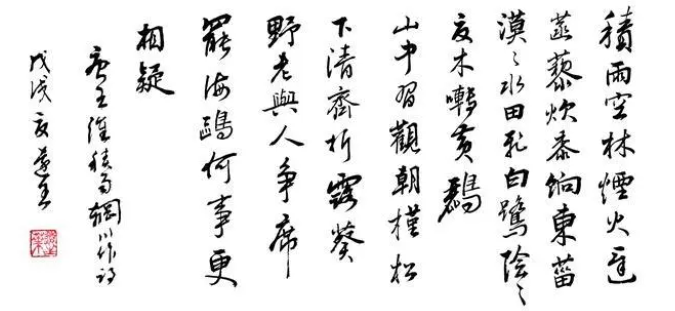 積雨空林煙火遲
蒸藜炊黍餉東菑
漠〻水田飛白鷺陰〻
夏木囀黃鸝
山中習觀朝槿松
下清齋折露葵
野老與人爭席
罷海鷗何事更
相疑
唐王維積雨輞川作詩
戊戌夏